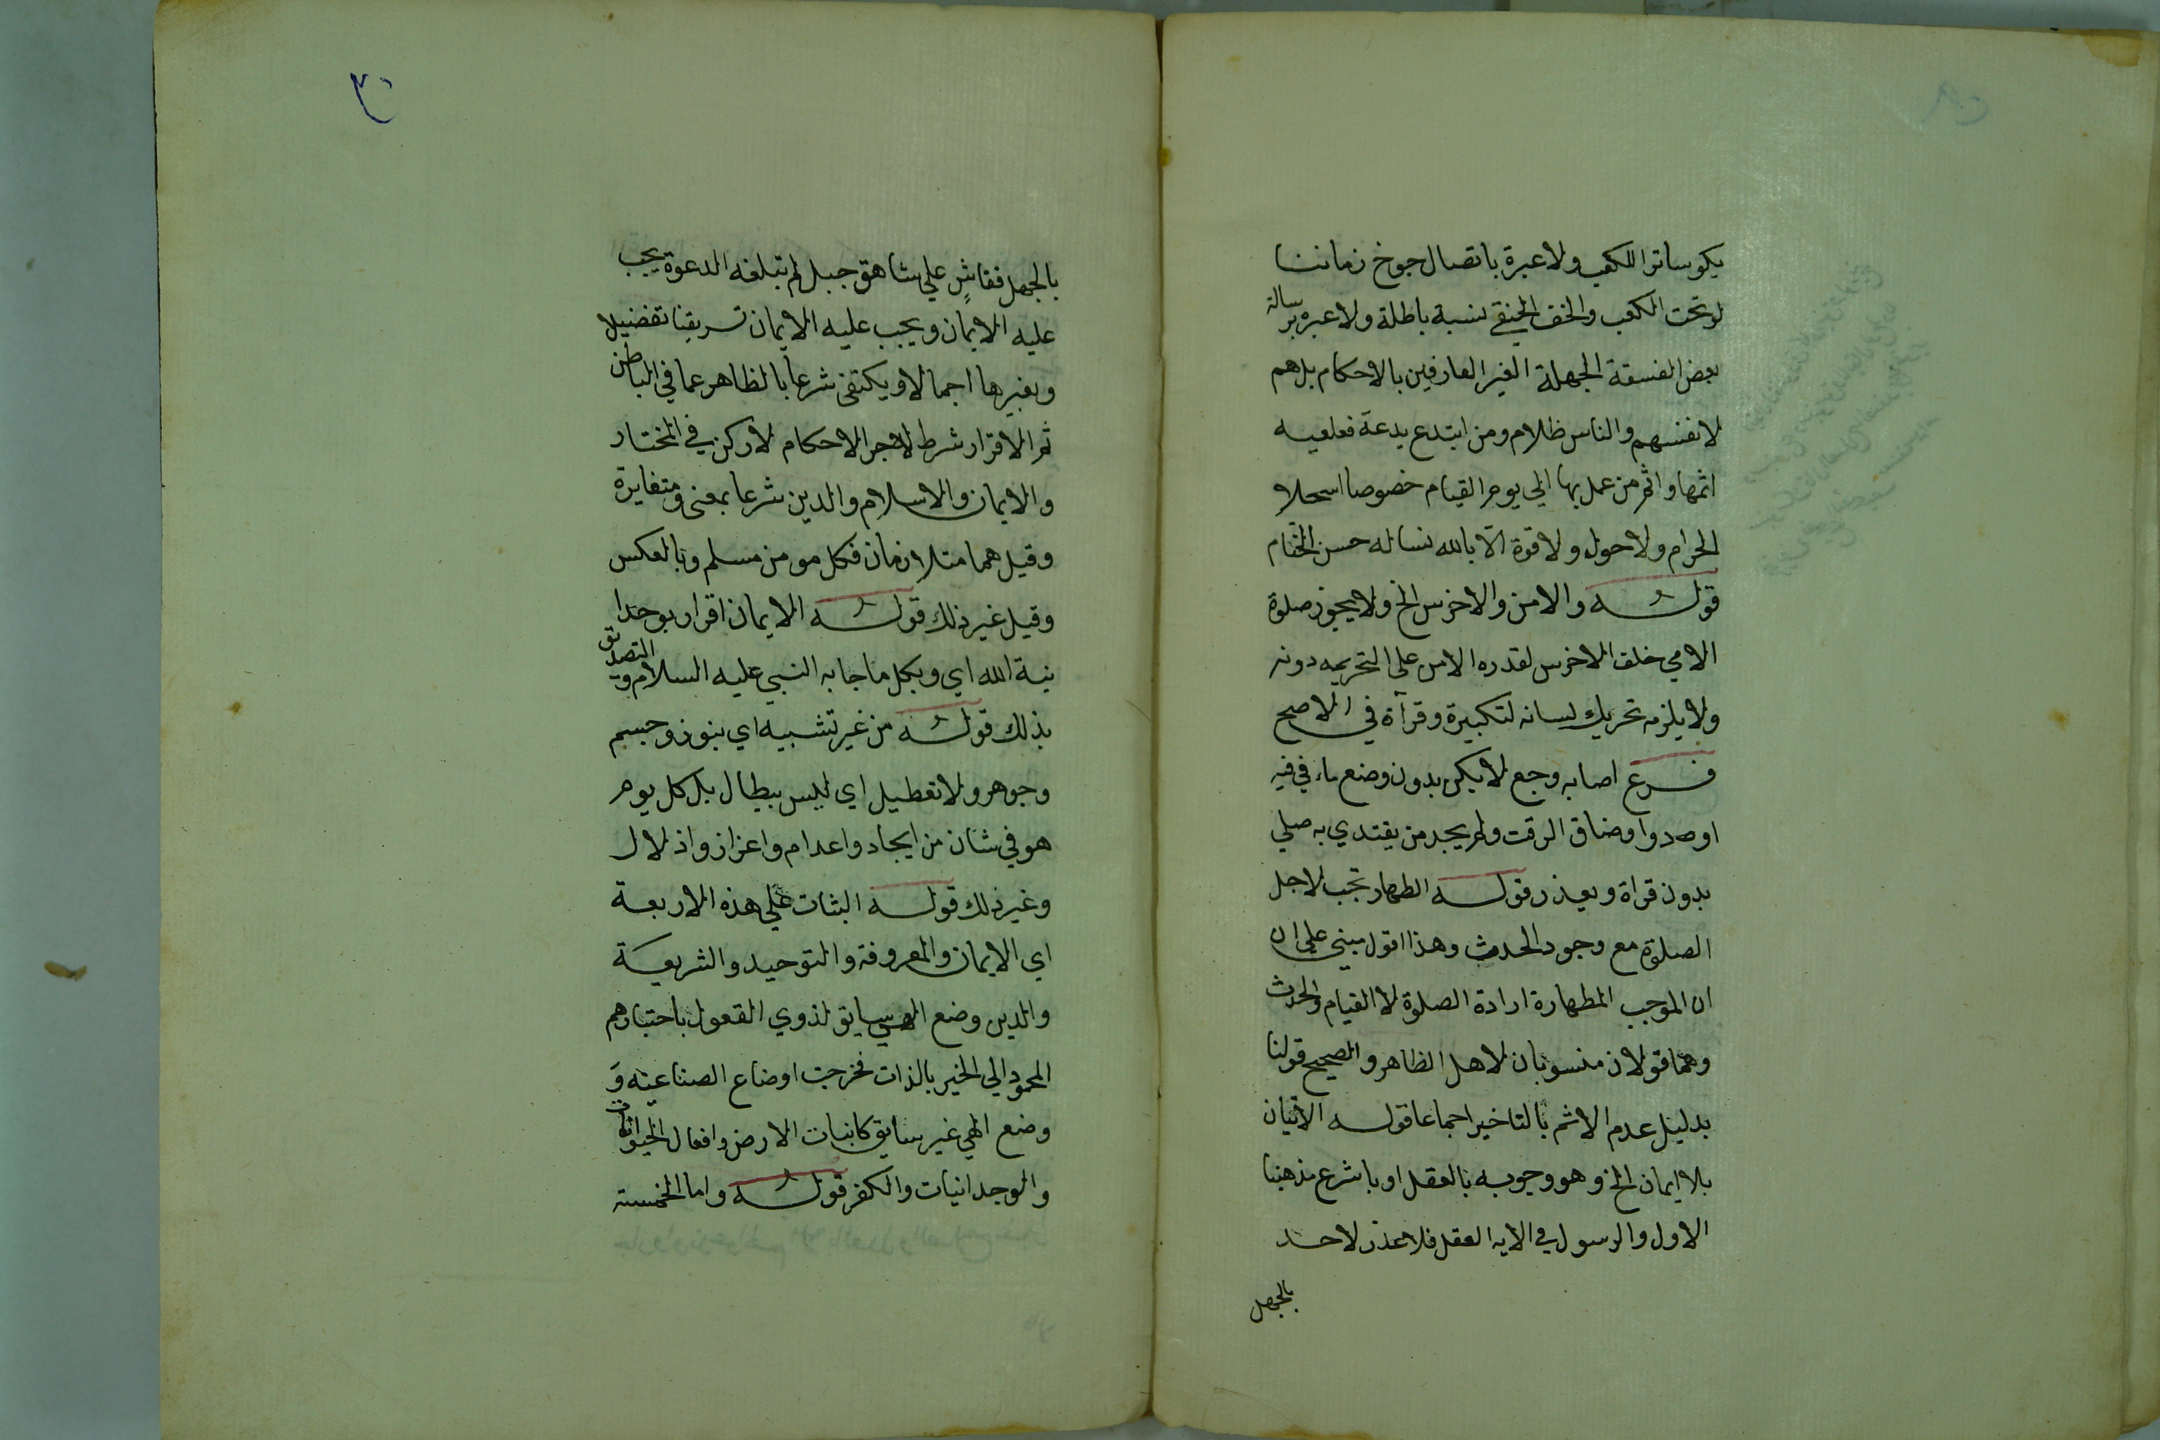 يكو ساترا للكعب ولا عبرة باتصال جوخ زماننا
لو تحت الكعب والخف الحنفي نسبة باطلة ولا عبرة برسالة
بعض الفسقة الجهلة الغير العارفين بالاحكام بل هم
لانفسهم والناس ظلام ومن ابتدع بدعة فعلعيه
اثمها واثم من عمل بها الي يوم القيام خصوصا اسحلا
الحرام ولا حول ولا قوة الا بالله نساله حسن الختام
قولـــه والامن والاخرس الخ ولا يجوز صلوة
الامي خلف الاخرس لقدره الامى على التحريمه دونه
ولا يلزمه تحريك لسانه لتكبيرة وقرآة في الاصح
فـــرع اصابه وجع لا يكن بدون وضع ماء في فيه
اوصدوا وضاق الرقت ولم يجد من يقتدي به صلي
بدون قراة ويعذر قولـــه الطهار تجب لاجل
الصلوة مع وجود الحدث وهذا اقول مبني علي ان
ان الموجب المطهارة ارادة الصلوة لا القيام والحدث
وهما قولان منسوبان لاهل الظاهر والصحيح قولنا
بدليل عدم الاثم بالتاخير اجماعا قولـــه الاتيان
بالايمان الخ وهو وجوبه بالعقل او باشرع مذهبنا
الاول والرسول في الايه العقل فلا عذر لاحد
بالجهل
بالجهل فقاش علي شاهق جبل لم تبلغه الدعوة يجب
عليه الايمان ويجب عليه الايمان تفضيلا
وبغيرها اجمالا ويكتفى شرعا بالظاهر عما في الباطن
ثم الاقرار شرط لاجر الاحكام لا ركن في المختار
والايمان والاسلام والدين شرعا بمعنى ومتغايرة
وقيل هما متلازمان فكل مومن مسلم وبالعكس
وقيل غير ذلك قولـــه الايمان اقرار بوحدا
نية الله اي وبكل ما جا به النبي عليه السلام والتصديق
بذلك قولـــه من غير تشبيه اي بنور وجسم
وجوهر ولا تعطيل اي ليس ببطال بل كل يوم
هو في شان من ايجاد واعدام واعزاز واذلال
وغير ذلك قولـــه الثبات علي هذه الاربعة
اي الايمان والمعروفة والتوحيد والشريعة
والدين وضع الهي سايق لذوي القعول باختيارهم
المحمود الي الخير بالذات فخرجت اوضاع الصناعيه و
وضع الهي غير سايق كانبات الارض وافعال الحيوانات
والوجدانيات والكفر قولـــه واما الخمسة